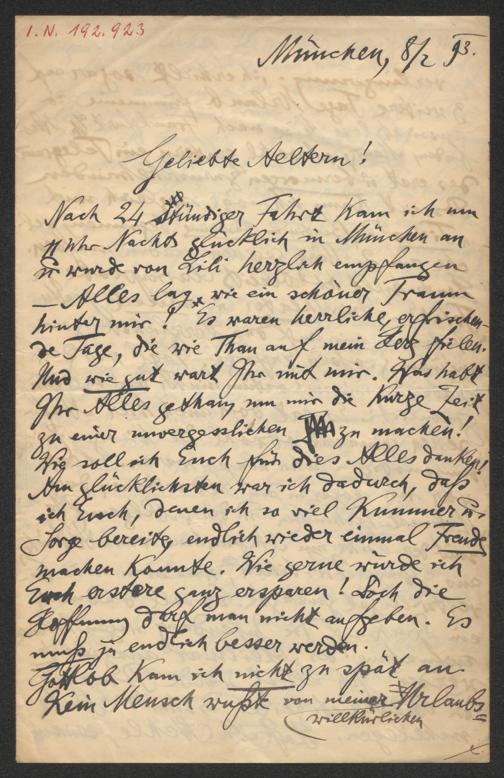 I. N. 192.923
München, 8/2 93.
Geliebte Aeltern!
Nach 24 stündiger Fahrt kam ich um
11 Uhr Nachts glücklich in München an
u wurde von Lili herzlich empfangen
— Alles lag, wie ein schöner Traum
hinter mir! Es waren herrliche, erfrischen-
de Tage, die wie Thau auf mein Herz fielen.
Und wie gut wart Ihr mit mir. Was habt
Ihr Alles gethan, um mir die kurze Zeit
zu einer unvergesslichen zu machen!
Wie soll ich Euch für dies Alles danken!
Am glücklichsten war ich dadurch, daß
ich Euch, denen ich so viel Kummer u.
Sorge bereite, endlich wieder einmal Freude
machen konnte. Wie gerne würde ich
Euch erstere ganz ersparen! Doch die
Hoffnung darf man nicht aufgeben. Es
muß ja endlich besser werden.
Gottlob kam ich nicht zu spät an
Kein Mensch wußte von meiner Urlaubs=
willkürlichen